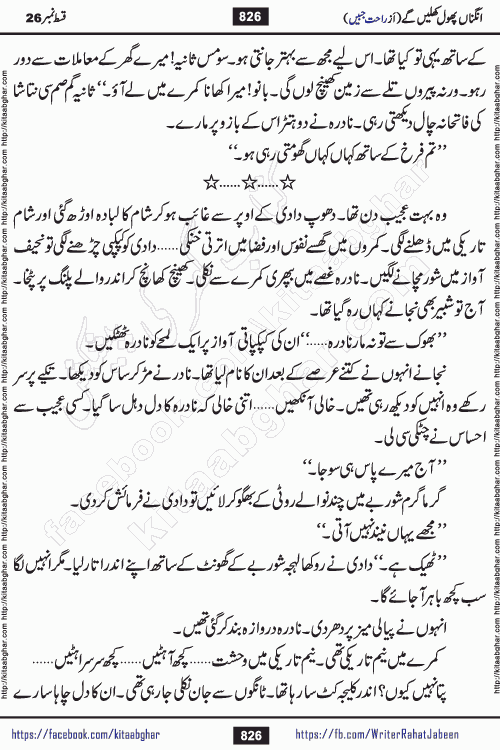 انگناں پھول کھلیں گے (از راحت جبیں) 826 قسط نمبر 26
کے ساتھ یہی تو کیا تھا۔ اس لیے مجھ سے بہتر جانتی ہو۔ سو مس ثانیہ! میرے گھر کے معاملات سے دور
رہو۔ ورنہ پیروں تلے سے زمین کھینچ لوں گی۔ بانو! میرا کھانا کمرے میں لے آؤ۔‘‘ ثانیہ گم صم سی نتاشا
کی فاتحانہ چال دیکھتی رہی۔ نادرہ نے دو ہتڑ اس کے بازو پر مارے۔
’’تم فرخ کے ساتھ کہاں کہاں گھومتی رہی ہو۔‘‘
☆......☆......☆
وہ بہت عجیب دن تھا۔ دھوپ دادی کے اوپر سے غائب ہو کر شام کا لبادہ اوڑھ گئی اور شام
تاریکی میں ڈھلنے لگی۔ کمروں میں گھسے نفوس اور فضا میں اترتی خنکی...... دادی کو کپکپی چڑھنے لگی تو نحیف
آواز میں شور مچانے لگیں۔ نادرہ غصے میں بپھری کمرے سے نکلی۔ کھینچ کھانچ کر اندر والے پلنگ پر پٹخا۔
آج تو شبیر بھی نجانے کہاں رہ گیا تھا۔
’’بھوک سے تو نہ مار نادرہ......‘‘ ان کی کپکپاتی آواز پر ایک لمحے کو نادرہ ٹھٹکیں۔
نجانے انہوں نے کتنے عرصے کے بعد ان کا نام لیا تھا۔ نادر نے مڑ کر ساس کو دیکھا۔ تکیے پر سر
رکھے وہ انہیں کو دیکھ رہی تھیں۔ خالی آنکھیں...... اتنی خالی کہ نادرہ کا دل دہل سا گیا۔ کسی عجیب سے
احساس نے چٹکی سی لی۔
’’آج میرے پاس ہی سو جا۔‘‘
گرما گرم شوربے میں چند نوالے روٹی کے بھگو کر لائیں تو دادی نے فرمائش کر دی۔
’’مجھے یہاں نیند نہیں آتی۔‘‘
’’ٹھیک ہے۔‘‘ دادی نے روکھا لہجہ شوربے کے گھونٹ کے ساتھ اپنے اندر اتار لیا۔ مگر انہیں لگا
سب کچھ باہر آ جائے گا۔
انہوں نے پیالی میز پر دھر دی۔ نادرہ دروازہ بند کر گئی تھیں۔
کمرے میں نیم تاریکی تھی۔ نیم تاریکی میں وحشت...... کچھ آہٹیں...... کچھ سرسراہٹیں......
پتا نہیں کیوں؟ اندر کلیجہ کٹ سا رہا تھا۔ ٹانگوں سے جان نکلی جا رہی تھی۔ ان کا دل چاہا سارے
https://facebook.com/kitaabghar 826 https://fb.com/WriterRahatJabeen
http://kitaabghar.com http://kitaabghar.com http://kitaabghar.com http://kitaabghar.com
http://kitaabghar.com http://kitaabghar.com http://kitaabghar.com http://kitaabghar.com
facebook.com/kitaabghar
kitaabghar.com